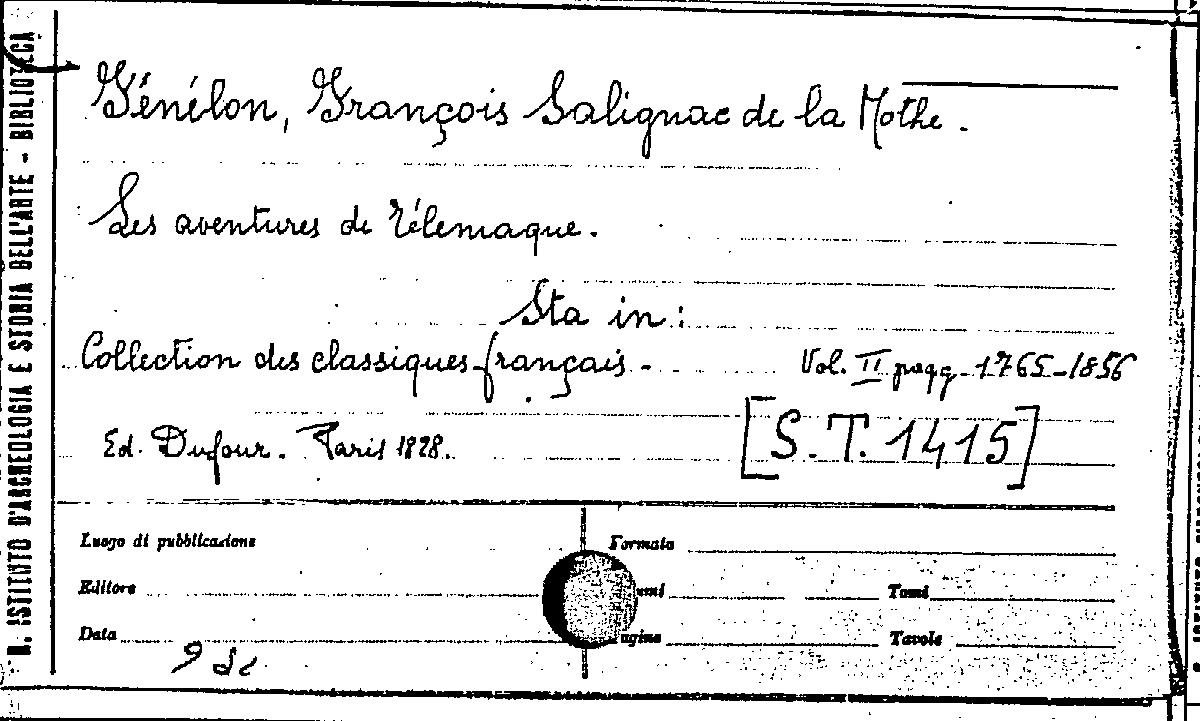 R. ISTITUTO D'ARCHEOLOGIA E STORIA DELL'ARTE - BIBLIOTECA
Fénélon, François Salignac de la Mothe.
Les aventures de Télemaque.
Sta in:
Collection des classiques français - Vol. II pagg. 1765-1856
Ed. Dufour. Paris 1828. [S.T.1415]
Luogo di pubblicazione
Formato
Editore
Tomi
Data
Tavole